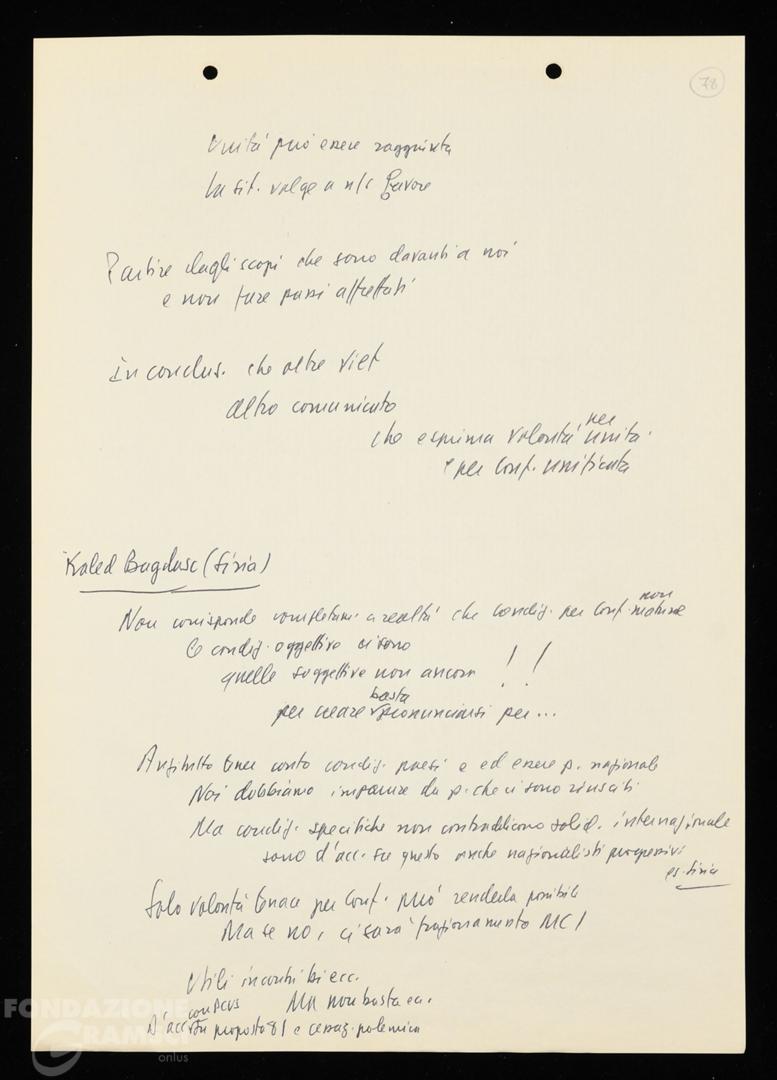 78
Unità può essere raggiunta
La sit. volge a n/s favore
Partire dagli scopi che sono davanti a noi
e non fare passi affrettati
In conclus. che oltre Viet
altro comunicato
che esprima volontà per unità
e per Conf. unificata
Kaled Bagdasc (Siria)
Non corrisponde completam. a realtà che condiz. per Conf. non mature
Le condiz. oggettive ci sono
quelle soggettive non ancora !!
per creare basta pronunciarsi per...
Anzitutto tener conto condiz. paesi e ed essere p. nazionali
Noi dobbiamo imparare da p. che ci sono riusciti
Ma condiz. specifiche non contraddicono solid. internazionale
sono d'acc. su questo anche nazionalisti progressivi
es. Siria
Solo volontà tenace per Conf. può renderla possibile
Ma se no, ci sarà frazionamento MCI
Utili incontri bi ecc.
Ma non basta
D'acc. con PCUS su proposta 81 e cessaz. polemica
FONDAZIONE
GRAMSCI
onlus